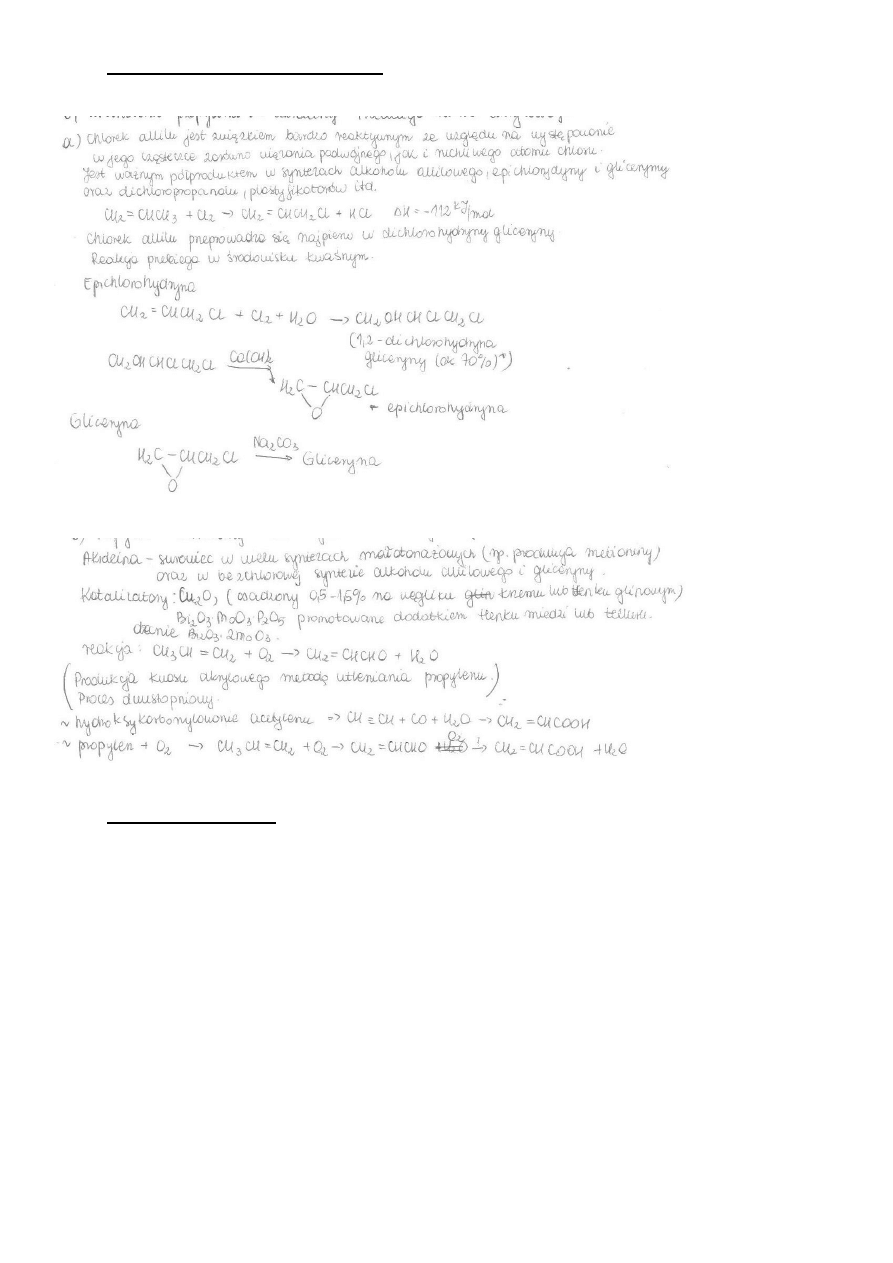 a) Chlorek allilu jest związkiem bardzo reaktywnym ze względu na występowanie
w jego cząsteczce zarówno wiązania podwójnego, jak i ruchliwego atomu chloru.
Jest ważnym półproduktem w syntezach alkoholu allilowego, epichlorydyny i gliceryny
oraz dichloropropanolu, plastyfikatorów itd.
CH2=CHCH3 + Cl2 → CH2=CHCH2Cl + HCl ΔH = -112 kJ/mol
Chlorek allilu przeprowadza się najpierw w dichlorohydryny gliceryny.
Reakcja przebiega w środowisku kwaśnym.
Epichlorohydryna
CH2=CHCH2Cl + Cl2 + H2O → CH2OHCHClCH2Cl
(1,2-dichlorohydryna
gliceryny (ok 70%))
CH2OHCHClCH2Cl Ca(OH)2 →
H2C - CHCH2Cl
O ← epichlorohydryna
Gliceryna
H2C - CHCH2Cl Na2CO3 → Gliceryna
O
Akroleina - surowiec w wielu syntezach małotonażowych (np. produkcja metioniny)
oraz w bezchlorowej syntezie alkoholu allilowego i gliceryny.
Katalizatory: Cu2O, (osadzony 0,5-1,5% na węgliku glin krzemu lub tlenku glinowym)
Bi2O3·MoO3·P2O5 promotowane dodatkiem tlenku miedzi lub telluru.
Bi2O3·2MoO3.
reakcja: CH3CH=CH2 + O2 → CH2=CHCHO + H2O
(Produkcja kwasu akrylowego metodą utleniania propylenu.)
Proces dwustopniowy.
~ hydroksykarbonylowanie acetylenu ⇒ CH≡CH + CO + H2O → CH2=CHCOOH
~ propylen + O2 → CH3CH=CH2 + O2 → CH2=CHCHO O2 → CH2=CHCOOH + H2O